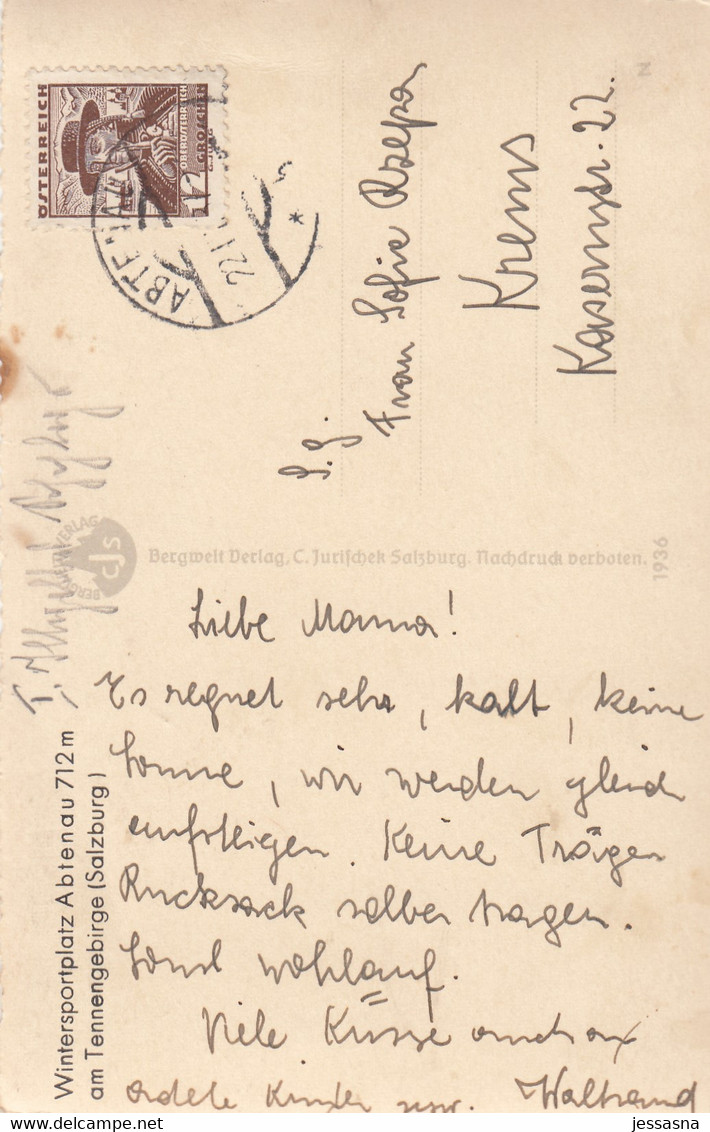 ÖSTERREICH
12
GROSCHEN
OBERÖSTERREICH
ABTENAU
22.
S.g.
Frau Sofie Rzepa
Krems
Kasernstr. 22.
Bergwelt Verlag, C. Jurischek Salzburg. Nachdruck verboten.
1936
N
cjs
Wintersportplatz Abtenau 712 m
am Tennengebirge (Salzburg)
Liebe Mama!
Es regnet sehr, kalt, keine
Sonne, wir werden gleich
aufsteigen. Keine Träger
Rucksack selber tragen.
Sonst wohlauf.
Viele Küsse auch an
Kinder Waltraud
jessasna